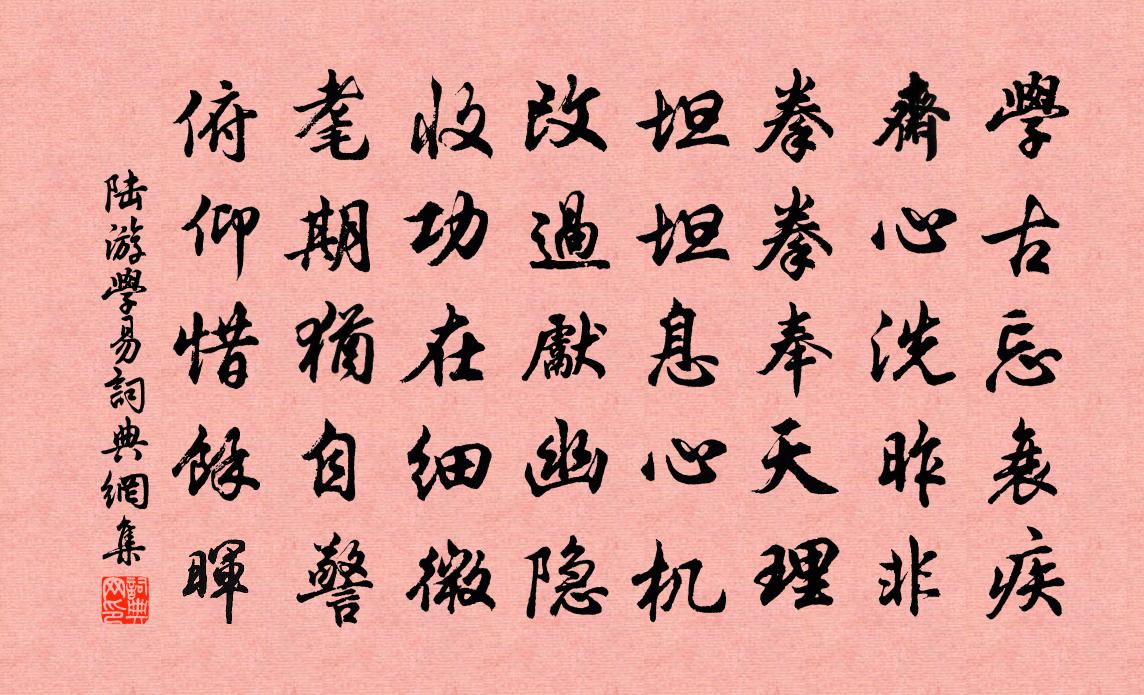 學古忘衰疾
齋心洗昨非
拳拳奉天理
坦坦息心机
改過獻幽隐
收功在细微
耄期猶自警
俯仰惜餘暉
陆游學易詞典網集
詞典网印